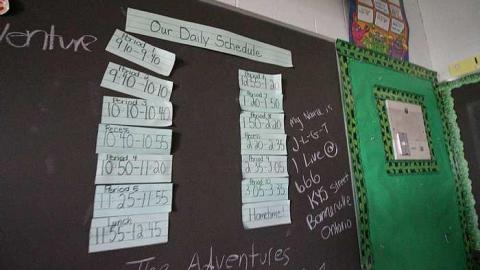 Our Daily Schedule
venture
Period 1
9:10-9:40
Period 2
9:40-10:10
Period 3
10:10-10:40
Recess
10:40-10:55
Period 4
10:50-11:20
Period 5
11:25-11:55
Lunch
11:55-12:45
12:55-1:20
Period 7
1:20-1:50
1:50-2:20
Recess
2:20-2:35
Period 9
2:35-3:05
Period 10
3:05-3:35
Hometime!
My Name is
J-L-G-T
I Live @
666
Street
Ontario
The Adventures